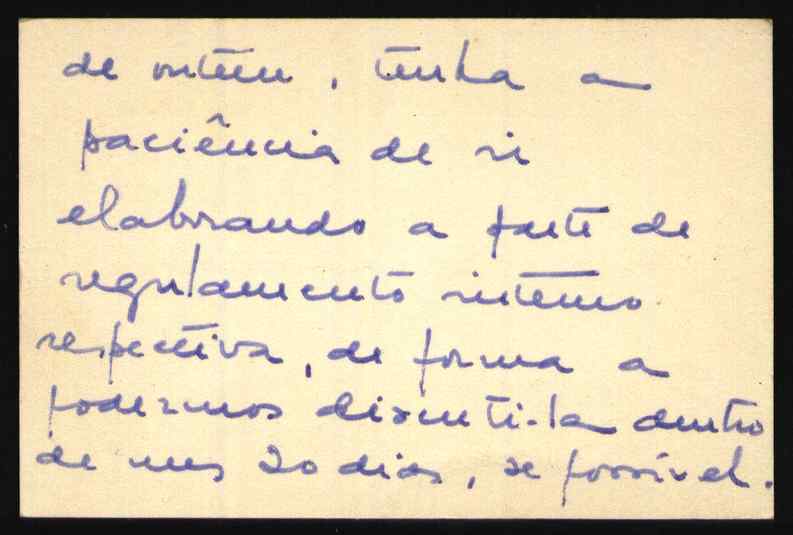 de ontem, tenha a
paciência de ir
elaborando a parte de
regulamento interno
respectiva, de forma a
podermos discuti-la dentro
de uns 20 dias, se possível.